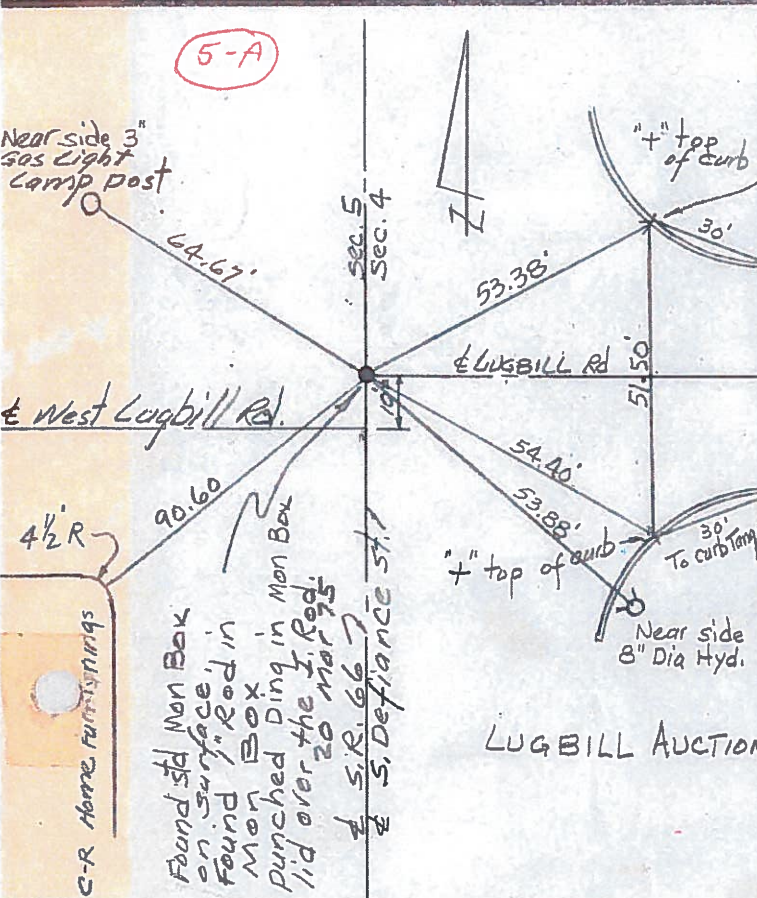 5-A
Near side 3"
Gas Light
Lamp post
64.67'
Sec. 5
Sec. 4
"+" top
of curb
30'
53.38'
℄ LUGBILL Rd
51.50'
℄ West Lugbill Rd.
10'
90.60
54.40'
53.88'
4½' R
"+" top of curb
30'
To curb Tang
Near side
8" Dia Hyd.
C-R Home Furnishings
Found std Mon Box
on surface,
Found 1" Rod in
Mon Box
Punched Ding in Mon Box
lid over the I. Rod.
20 Mar 75
℄ S.R. 66
℄ S. Defiance St.
LUGBILL AUCTION